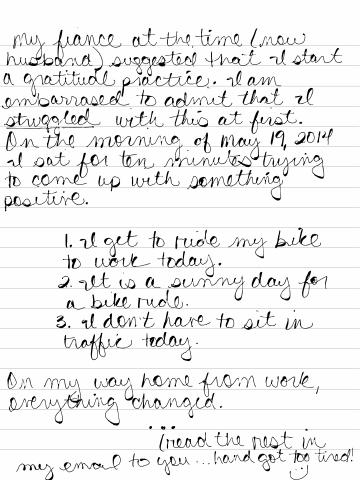 my fiance at the time (now
husband) suggested that I start
a gratitual practice. I am
embarrased to admit that I
struggled with this at first.
On the morning of May 19, 2014
I sat for ten minutes trying
to come up with something
positive.
1. I get to ride my bike
to work today.
2. It is a sunny day for
a bike ride.
3. I don't have to sit in
traffic today.
On my way home from work,
everything changed.
...
(read the rest in
my email to you... hand got too tired!
:)